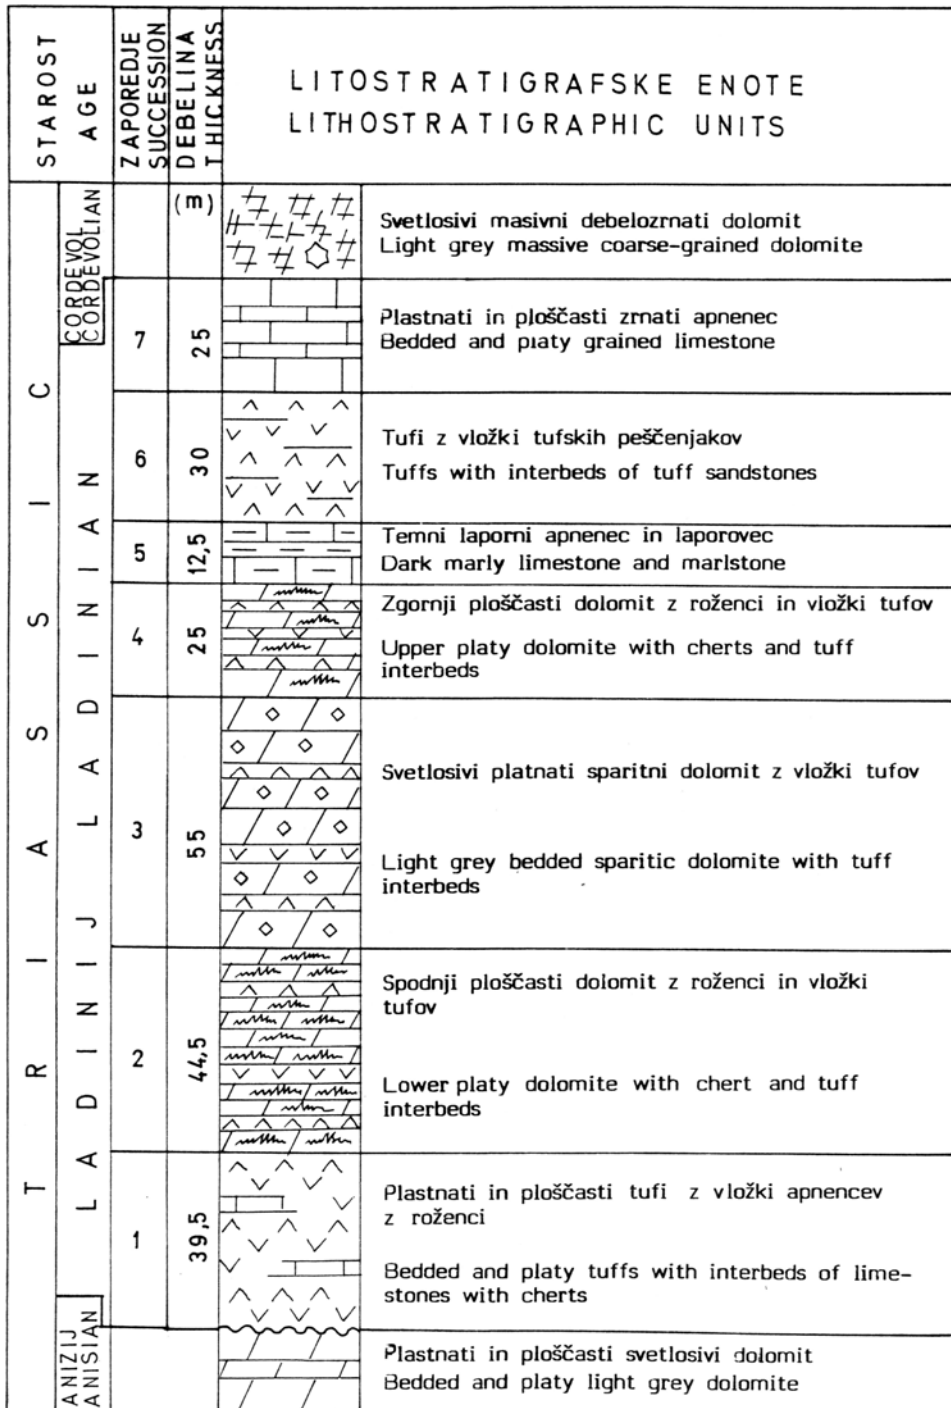 STAROST
AGE
ZAPOREDJE
SUCCESSION
DEBELINA
THICKNESS
LITOSTRATIGRAFSKE ENOTE
LITHOSTRATIGRAPHIC UNITS
TRIAS
TRIASSIC
CORDEVOL
CORDEVOLIAN
(m)
Svetlosivi masivni debelozrnati dolomit
Light grey massive coarse-grained dolomite
LADINIJ
LADINIAN
7
25
Plastnati in ploščasti zrnati apnenec
Bedded and platy grained limestone
6
30
Tufi z vložki tufskih peščenjakov
Tuffs with interbeds of tuff sandstones
5
12,5
Temni laporni apnenec in laporovec
Dark marly limestone and marlstone
4
25
Zgornji ploščasti dolomit z roženci in vložki tufov
Upper platy dolomite with cherts and tuff
interbeds
3
55
Svetlosivi platnati sparitni dolomit z vložki tufov
Light grey bedded sparitic dolomite with tuff
interbeds
2
44,5
Spodnji ploščasti dolomit z roženci in vložki
tufov
Lower platy dolomite with chert and tuff
interbeds
1
39,5
Plastnati in ploščasti tufi z vložki apnencev
z roženci
Bedded and platy tuffs with interbeds of lime-
stones with cherts
ANIZIJ
ANISIAN
Plastnati in ploščasti svetlosivi dolomit
Bedded and platy light grey dolomite